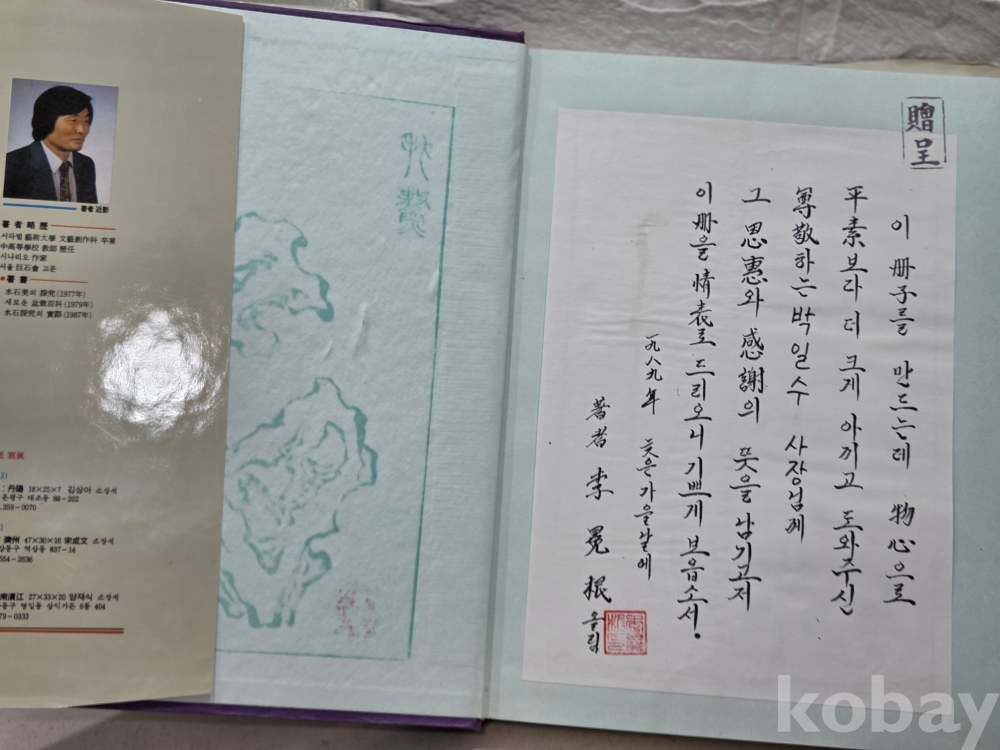 著者 近影
著者略歷
서라벌 藝術大學 文藝創作科 卒業
中高等學校 敎師 歷任
시나리오 作家
서울 巨石會 고문
●著書
水石美의 探究(1977年)
새로운 盆栽百科(1979年)
水石探究의 實際(1987年)
寫眞
: 丹陽 18×25×7 김삼아 소장석
은평구 대조동 88-202
359-0070
濟州 47×30×16 宋成文 소장석
강동구 역삼동 837-14
554-2636
南漢江 27×33×20 양재식 소장석
동구 명일동 삼익가든 6동 404
79-0333
贈呈
이 册子를 만드는데 物心으로
平素보다 더 크게 아끼고 도와주신
尊敬하는 박일수 사장님께
그 恩惠와 感謝의 뜻을 남기고저
이 册을 情表로 드리오니 기쁘게 보옵소서.
一九八九年 늦은가을날에
著者 李冕根 올림
kobay